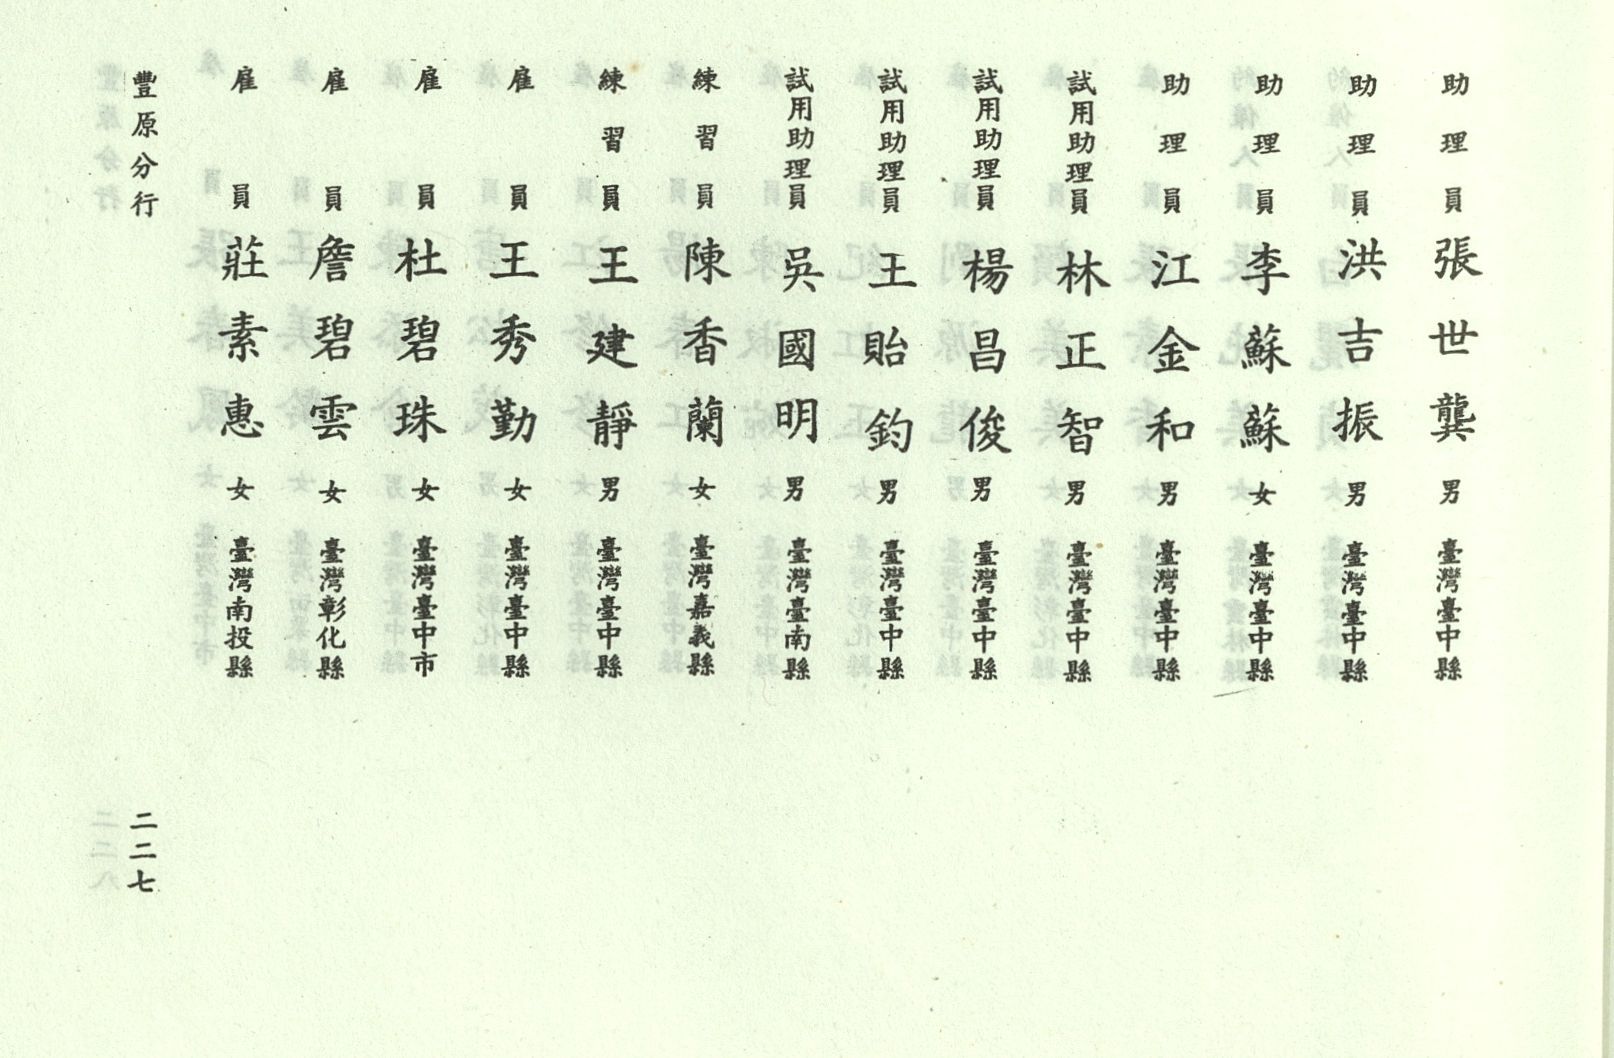 助理員 張世龔 男 臺灣臺中縣
助理員 洪吉振 男 臺灣臺中縣
助理員 李蘇蘇 女 臺灣臺中縣
助理員 江金和 男 臺灣臺中縣
試用助理員 林正智 男 臺灣臺中縣
試用助理員 楊昌俊 男 臺灣臺中縣
試用助理員 王貽鈞 男 臺灣臺中縣
試用助理員 吳國明 男 臺灣臺南縣
練習員 陳香蘭 女 臺灣嘉義縣
練習員 王建靜 男 臺灣臺中縣
雇員 王秀勤 女 臺灣臺中縣
雇員 杜碧珠 女 臺灣臺中市
雇員 詹碧雲 女 臺灣彰化縣
雇員 莊素惠 女 臺灣南投縣
豐原分行 二二七